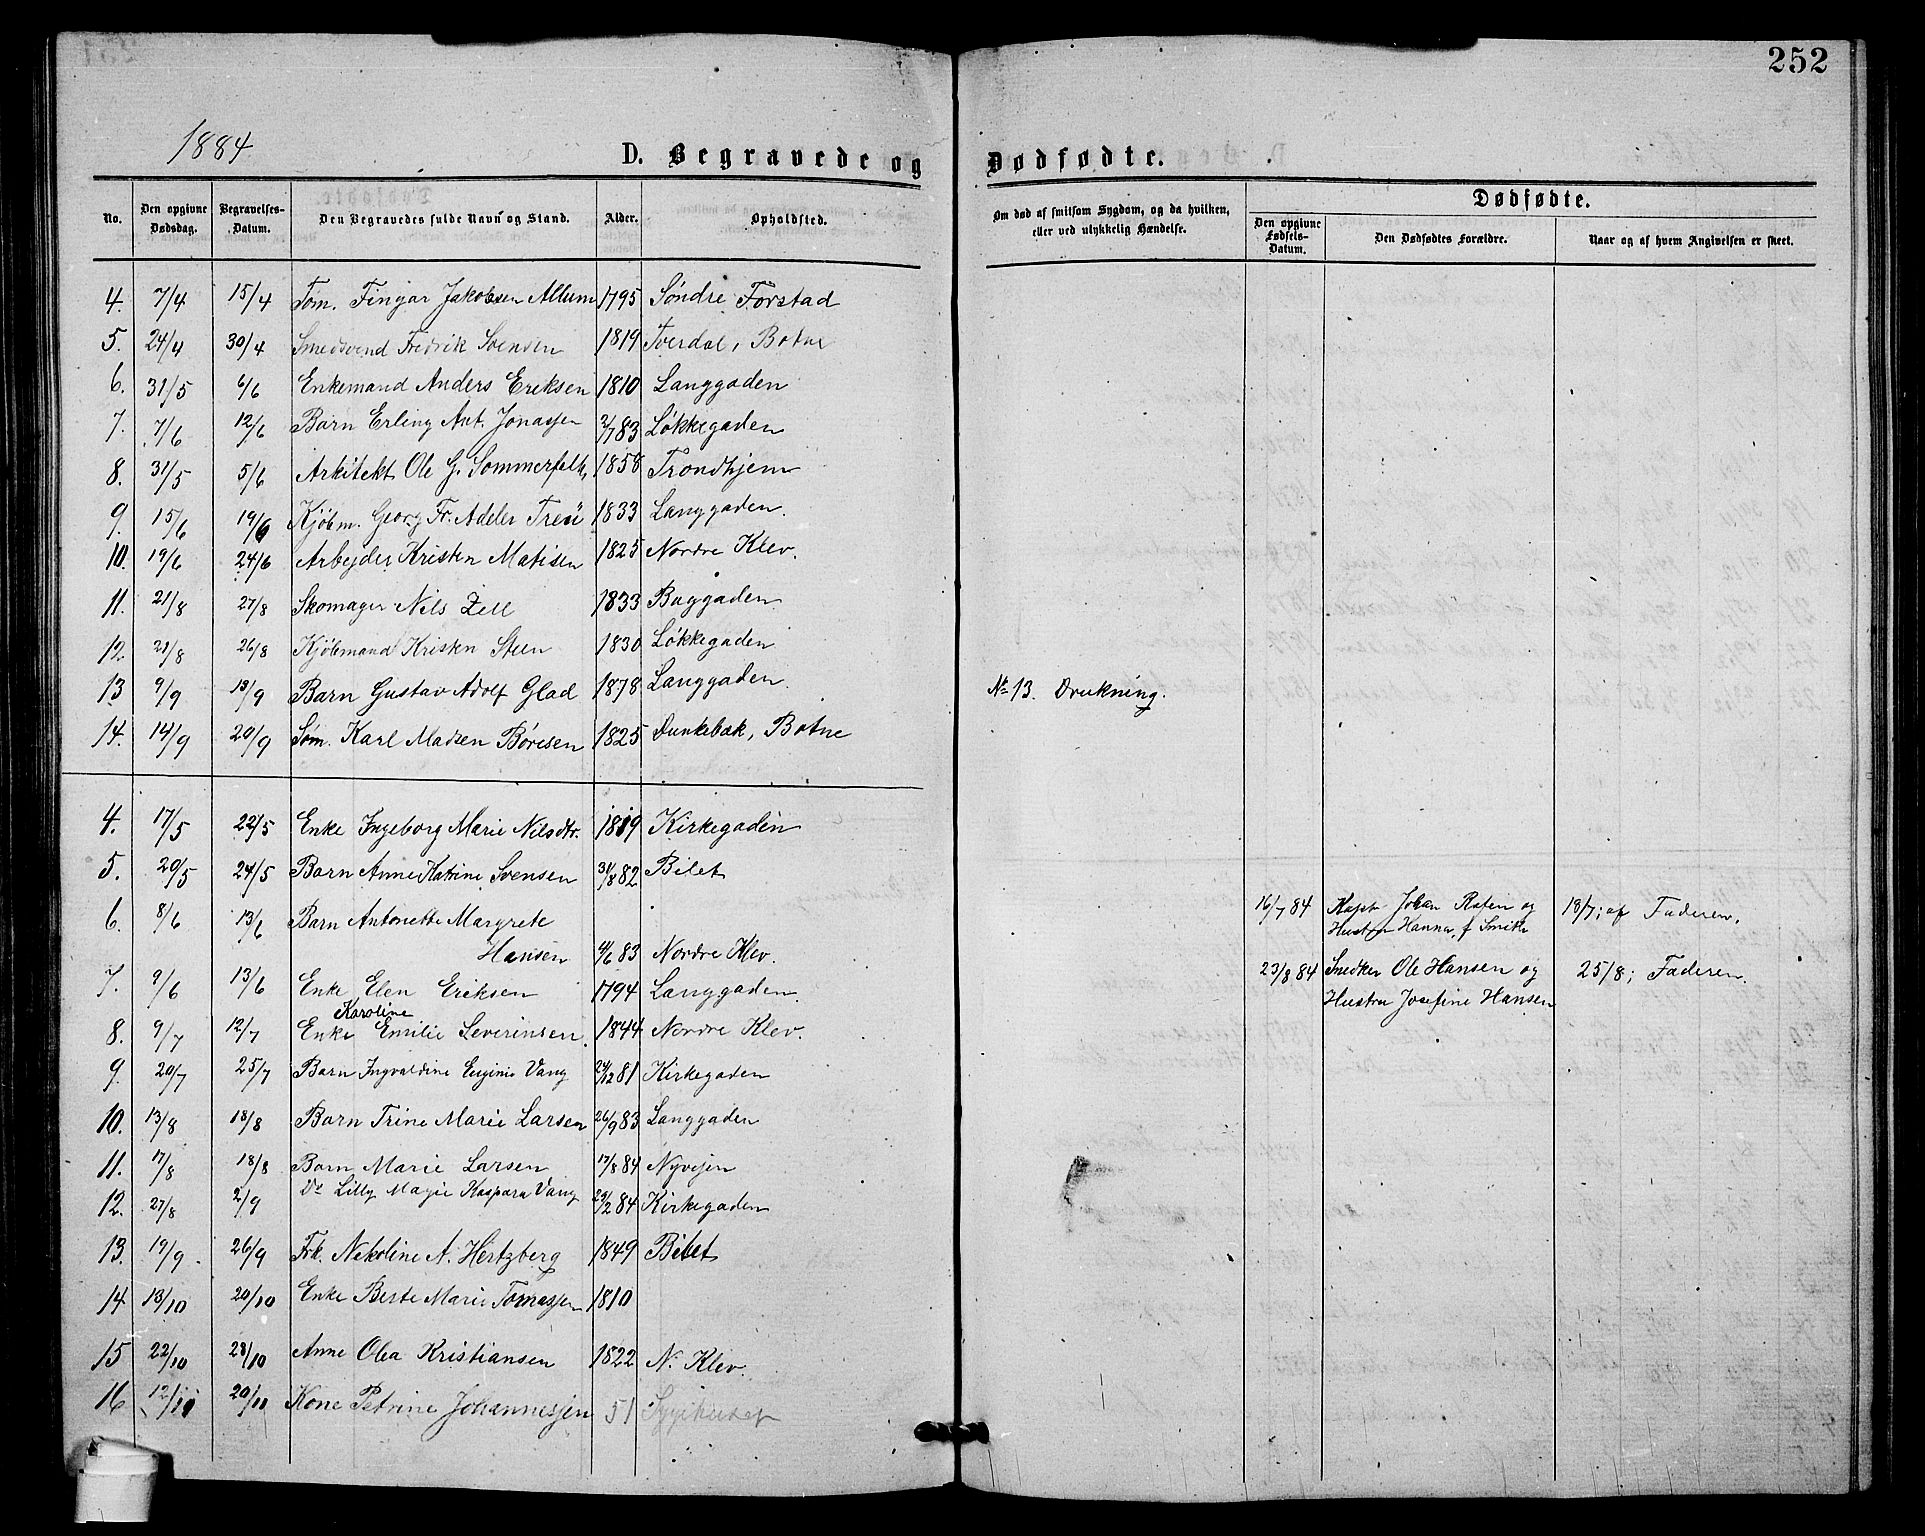 252
1884
D. Begravede og Dødfødte.
No. Den opgivne Dødsdag. Begravelses-Datum. Den Begravedes fulde Navn og Stand. Alder. Opholdsted. Om død af smitsom Sygdom, og da hvilken, eller ved ulykkelig Hændelse. Dødfødte. Den opgivne Fødsels-Datum. Den Dødfødtes Forældre. Naar og af hvem Angivelsen er skeet.
4. 7/4 15/4 Tøm. Fingar Jakobsen Allum 1795 Søndre Forstad
5. 24/4 30/4 Smedsvend Fredrik Svensen 1819 Tverdal, Botne
6. 31/5 6/6 Enkemand Anders Eriksen 1810 Langgaden
7. 7/6 12/6 Barn Erling Ant. Jonassen 2/7 83 Løkkegaden
8. 31/5 5/6 Arkitekt Ole G. Sommerfelt, 1858 Trondhjem
9. 15/6 19/6 Kjøbm. Georg Fr. Adeler Treu 1833 Langgaden.
10. 19/6 24/6 Arbejder Kristen Matisen 1825 Nordre Klev.
11. 21/8 27/8 Skomager Nils Zell 1833 Baggaden
12. 21/8 26/8 Kjøbmand Kristen Steen 1830 Løkkegaden
13 9/9 13/9 Barn Gustav Adolf Glad 1878 Langgaden. No 13. Drukning.
14. 14/9 20/9 Søm. Karl Madsen Børesen 1825 Dunkebæk, Botne
4. 17/5 22/5 Enke Ingeborg Marie Nilsdtr. 1819 Kirkegaden
5. 20/5 24/5 Barn Anne Katrine Svensen 31/8 82 Bilet
6. 8/6 13/6 Barn Antonette Margrete
Hansen 4/6 83 Nordre Klev.
7. 9/6 13/6 Enke Elen Eriksen 1794 Langgaden.
Karoline
8. 9/7 12/7 Enke Emilie Severinsen. 1844 Nordre Klev.
9. 20/7 25/7 Barn Ingvaldine Euginie Vang 24/12 81 Kirkegaden
10. 13/8 18/8 Barn Trine Marie Larsen 26/9 83 Langgaden
11. 17/8 18/8 Barn Marie Larsen 17/8 84 Nyvejen
12. 27/8 2/9 Do Lilly Magie Kaspara Vang 29/2 84 Kirkegaden
13. 19/9 26/9 Frk. Nikoline A. Hertzberg 1849 Bilet
14 13/10 20/10 Enke Berte Marie Tomassen 1810
15 22/10 28/10 Anne Olea Kristiansen 1822 N. Klev.
16 12/11 20/11 Kone Petrine Johannessen 51 Sygehuset
16/7 84 Kapt. Johan Rafen og 18/7; af Faderen.
Hustru Hanna, f Smith
23/8 84 Snedker Ole Hansen og 25/8; Faderen.
Hustru Josefine Hansen